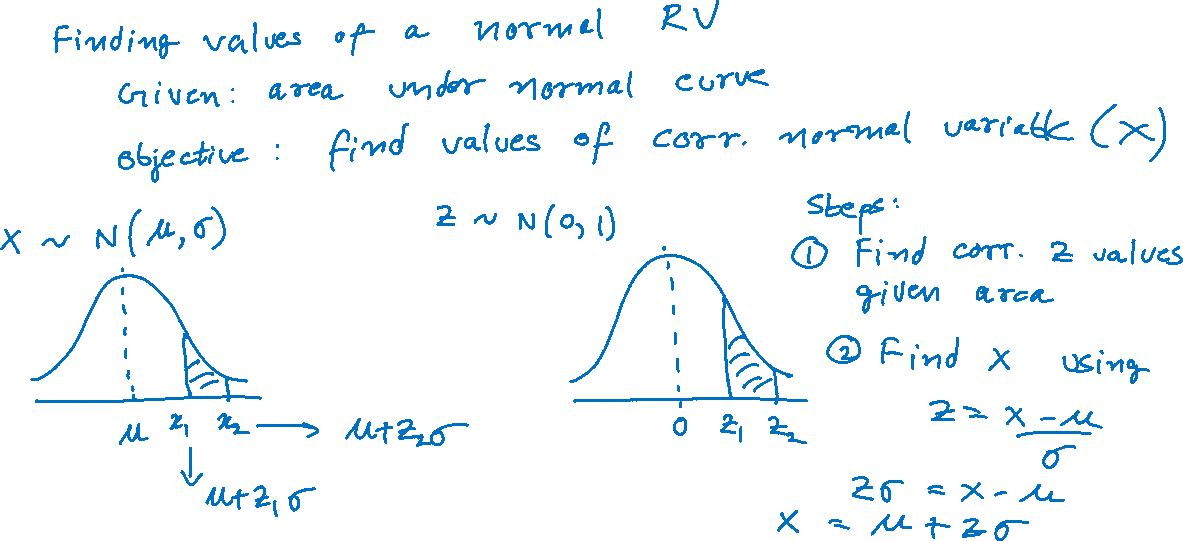 Finding values of a normal RV
Given: area under normal curve
objective: find values of corr. normal variable (X)
X ~ N(μ, σ)
μ x₁ x₂ → μ+z₂σ
↓
μ+z₁σ
Z ~ N(0, 1)
0 z₁ z₂
Steps:
① Find corr. Z values
given area
② Find X using
Z = X-μ
σ
Zσ = X-μ
X = μ + Zσ